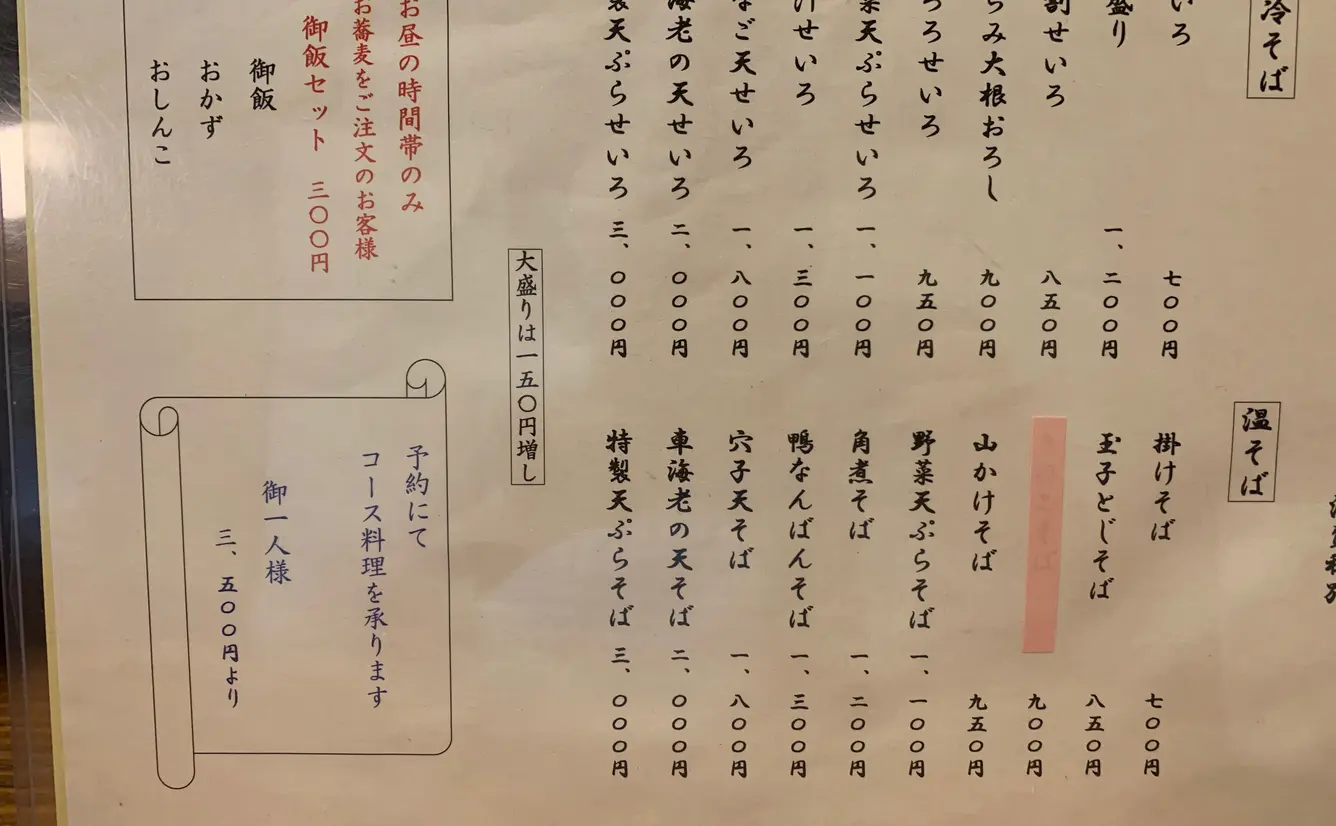 冷そば
いろ 七〇〇円
盛り 一、二〇〇円
割せいろ 八五〇円
らみ大根おろし 九〇〇円
ろろせいろ 九五〇円
菜天ぷらせいろ 一、一〇〇円
汁せいろ 一、三〇〇円
なご天せいろ 一、八〇〇円
海老の天せいろ 二、〇〇〇円
製天ぷらせいろ 三、〇〇〇円
温そば
掛けそば 七〇〇円
玉子とじそば 八五〇円
九〇〇円
山かけそば 九五〇円
野菜天ぷらそば 一、一〇〇円
角煮そば 一、二〇〇円
鴨なんばんそば 一、三〇〇円
穴子天そば 一、八〇〇円
車海老の天そば 二、〇〇〇円
特製天ぷらそば 三、〇〇〇円
大盛りは一五〇円増し
お昼の時間帯のみ
お蕎麦をご注文のお客様
御飯セット 三〇〇円
御飯
おかず
おしんこ
予約にて
コース料理を承ります
御一人様
三、五〇〇円より